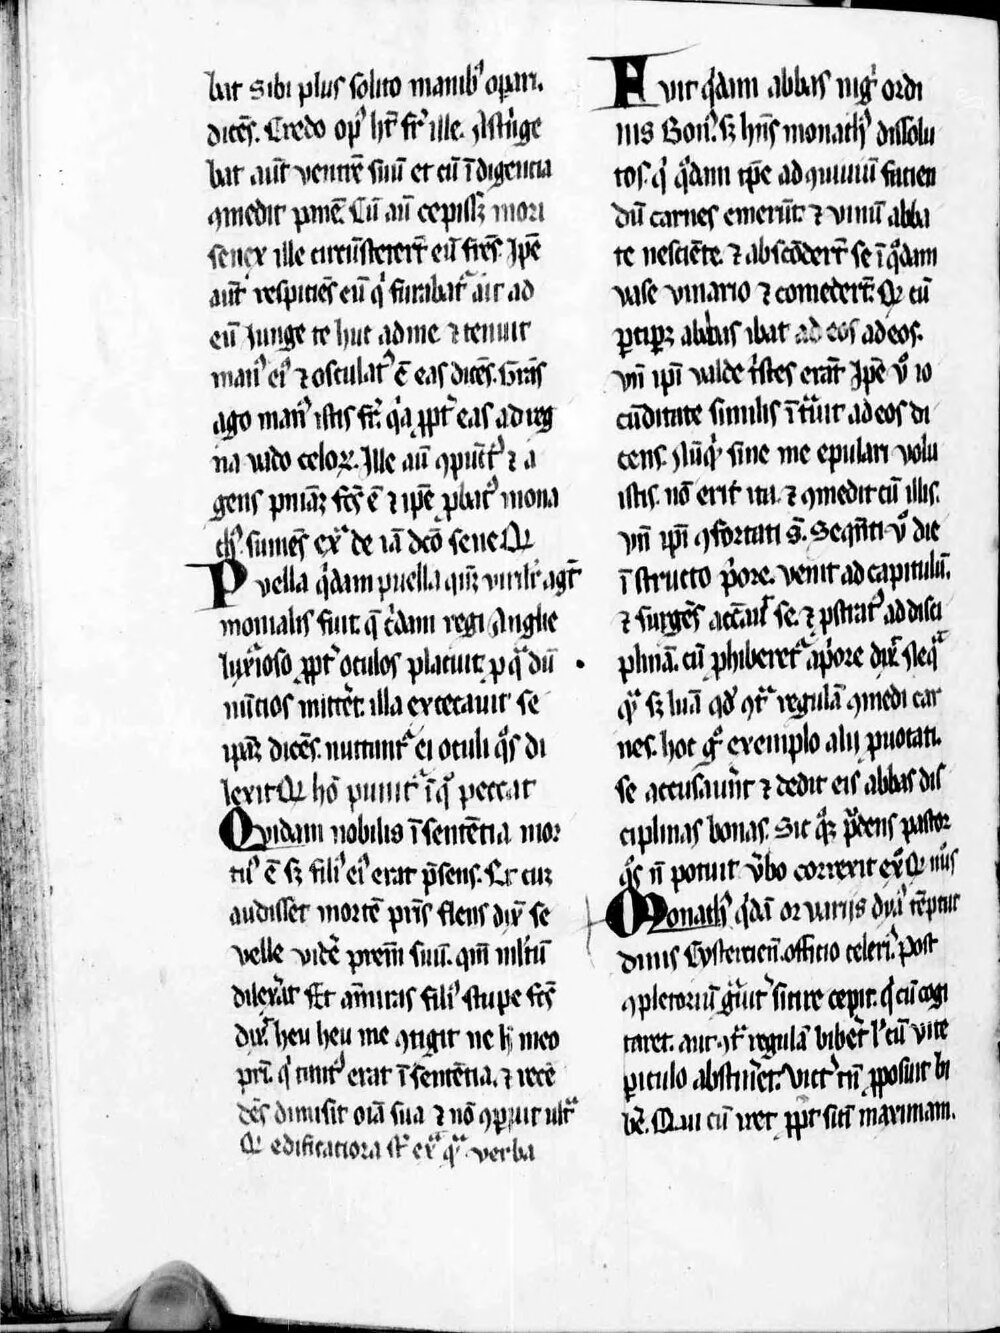 bat sibi plus solito manib' opari.
dicēs. Credo op' ht̄ fr̄ ille. Astrīge
bat aut̄ ventrē suū et cū īdigentia
ꝯmedit panē. Cū aū cepiss; mori
senex ille circūsteterūt eū fres̄. Ipē
aut̄ respiciēs eū q' furabat' ait ad
eū Junge te huc ad me ⁊ tenuit
man' ei' ⁊ osculat' ē eas dicēs. Grās
ago man' istis fr̄. q'a ꝓpt' eas ad reg
na vado celoꝝ. Ille aū ꝯpunct' ⁊ a
gens pniāꝫ fcs̄ ē ⁊ ipē ꝓbat' mona
ch'. sumēs ex' de iā dcō sene Qr
Puella q'dam puella quꝫ
monialis fuit. q̄ c'dam regi Anglie
luxīoso ꝓpt' oculos placuit. ꝑ qª dū
nūcios mittēt. illa execauit se
ipāꝫ dicēs. nuctunt' ei oculi q°s di
lexit Qr hō punit' ī q° peccat
Quidam nobilis ī sententia mor
tis' ē sꝫ fili' ei' erat p̄sens. Et cuꝫ
audisset mortē pris̄ flens dix' se
velle vidē prem̄ suū. qm̄ mltū
dilexāt Et amiras fili' stupe fcs̄
dix' heu heu me ꝯtigit ne h meo
pri. q' tant' erat ī sentētia. ⁊ rece
dēs dimisit oīa sua ⁊ nō ꝯparuit ult'
Qr edificatiora st' exª qª verba
Fuit q'dam abbas nig' ordi
nis Bon'. sꝫ hns̄ monach' dissolu
tos. q' q'dam tp̄e ad ꝯuiuiū facien
dū carnes emerūt ⁊ vinū abba
te nesciēte. ⁊ abscōderūt se ī q°dam
vase vinario ⁊ comederūt. Qr cū
ꝑcipꝫ abbas ibat ad eos ad eos.
vn̄ ipi valde t'stes erāt Ipē v° io
cūditate similis ītᵃuit ad eos di
cens. Nūq' sine me epulari volu
istis. nō erit ita. ⁊ ꝯmedit cū illis.
vn̄ ipi ꝯfortati s̄. Seqn̄ti v° die
īstructo p'ore. venit ad capitulū.
⁊ surgēs accūauit se. ⁊ pstrat' ad disci
plinā. cū ꝓhiberet' a p'ore dix'.
q' sꝫ luā qd' ꝯtª regulā ꝯmedi car
nes. hoc g° exemplo alij puocati.
se accusauūt ⁊ dedit eis abbas dis
ciplinas bonas. Sic q°ꝫ pͣdens pastor
q°s n̄ potuit v'bo correxit ex° Qr
Monach' q'dā or varijs dya' tēptat
dinis Cysterciēn. officio celeri'. post
ꝯpletoriū g'uit' sitire cepit. q' cū cogi
taret. aut ꝯtª regulā bibēt l' cū vite
ꝑiculo abstinēt. Vict' tn̄ ꝓposuit bi
bē. Qui cū iret ꝓpt' sitī maximam.